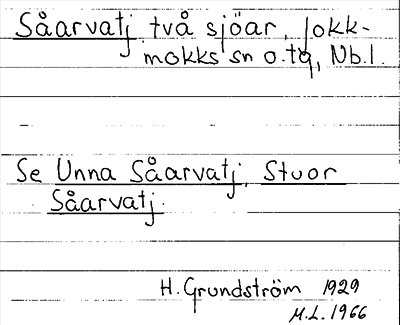 Såarvatj, två sjöar, Jokk-
mokks sn o. tg, Nb. l.
Se Unna Såarvatj, Stuor
Såarvatj.
H. Grundström 1929
M.L. 1966